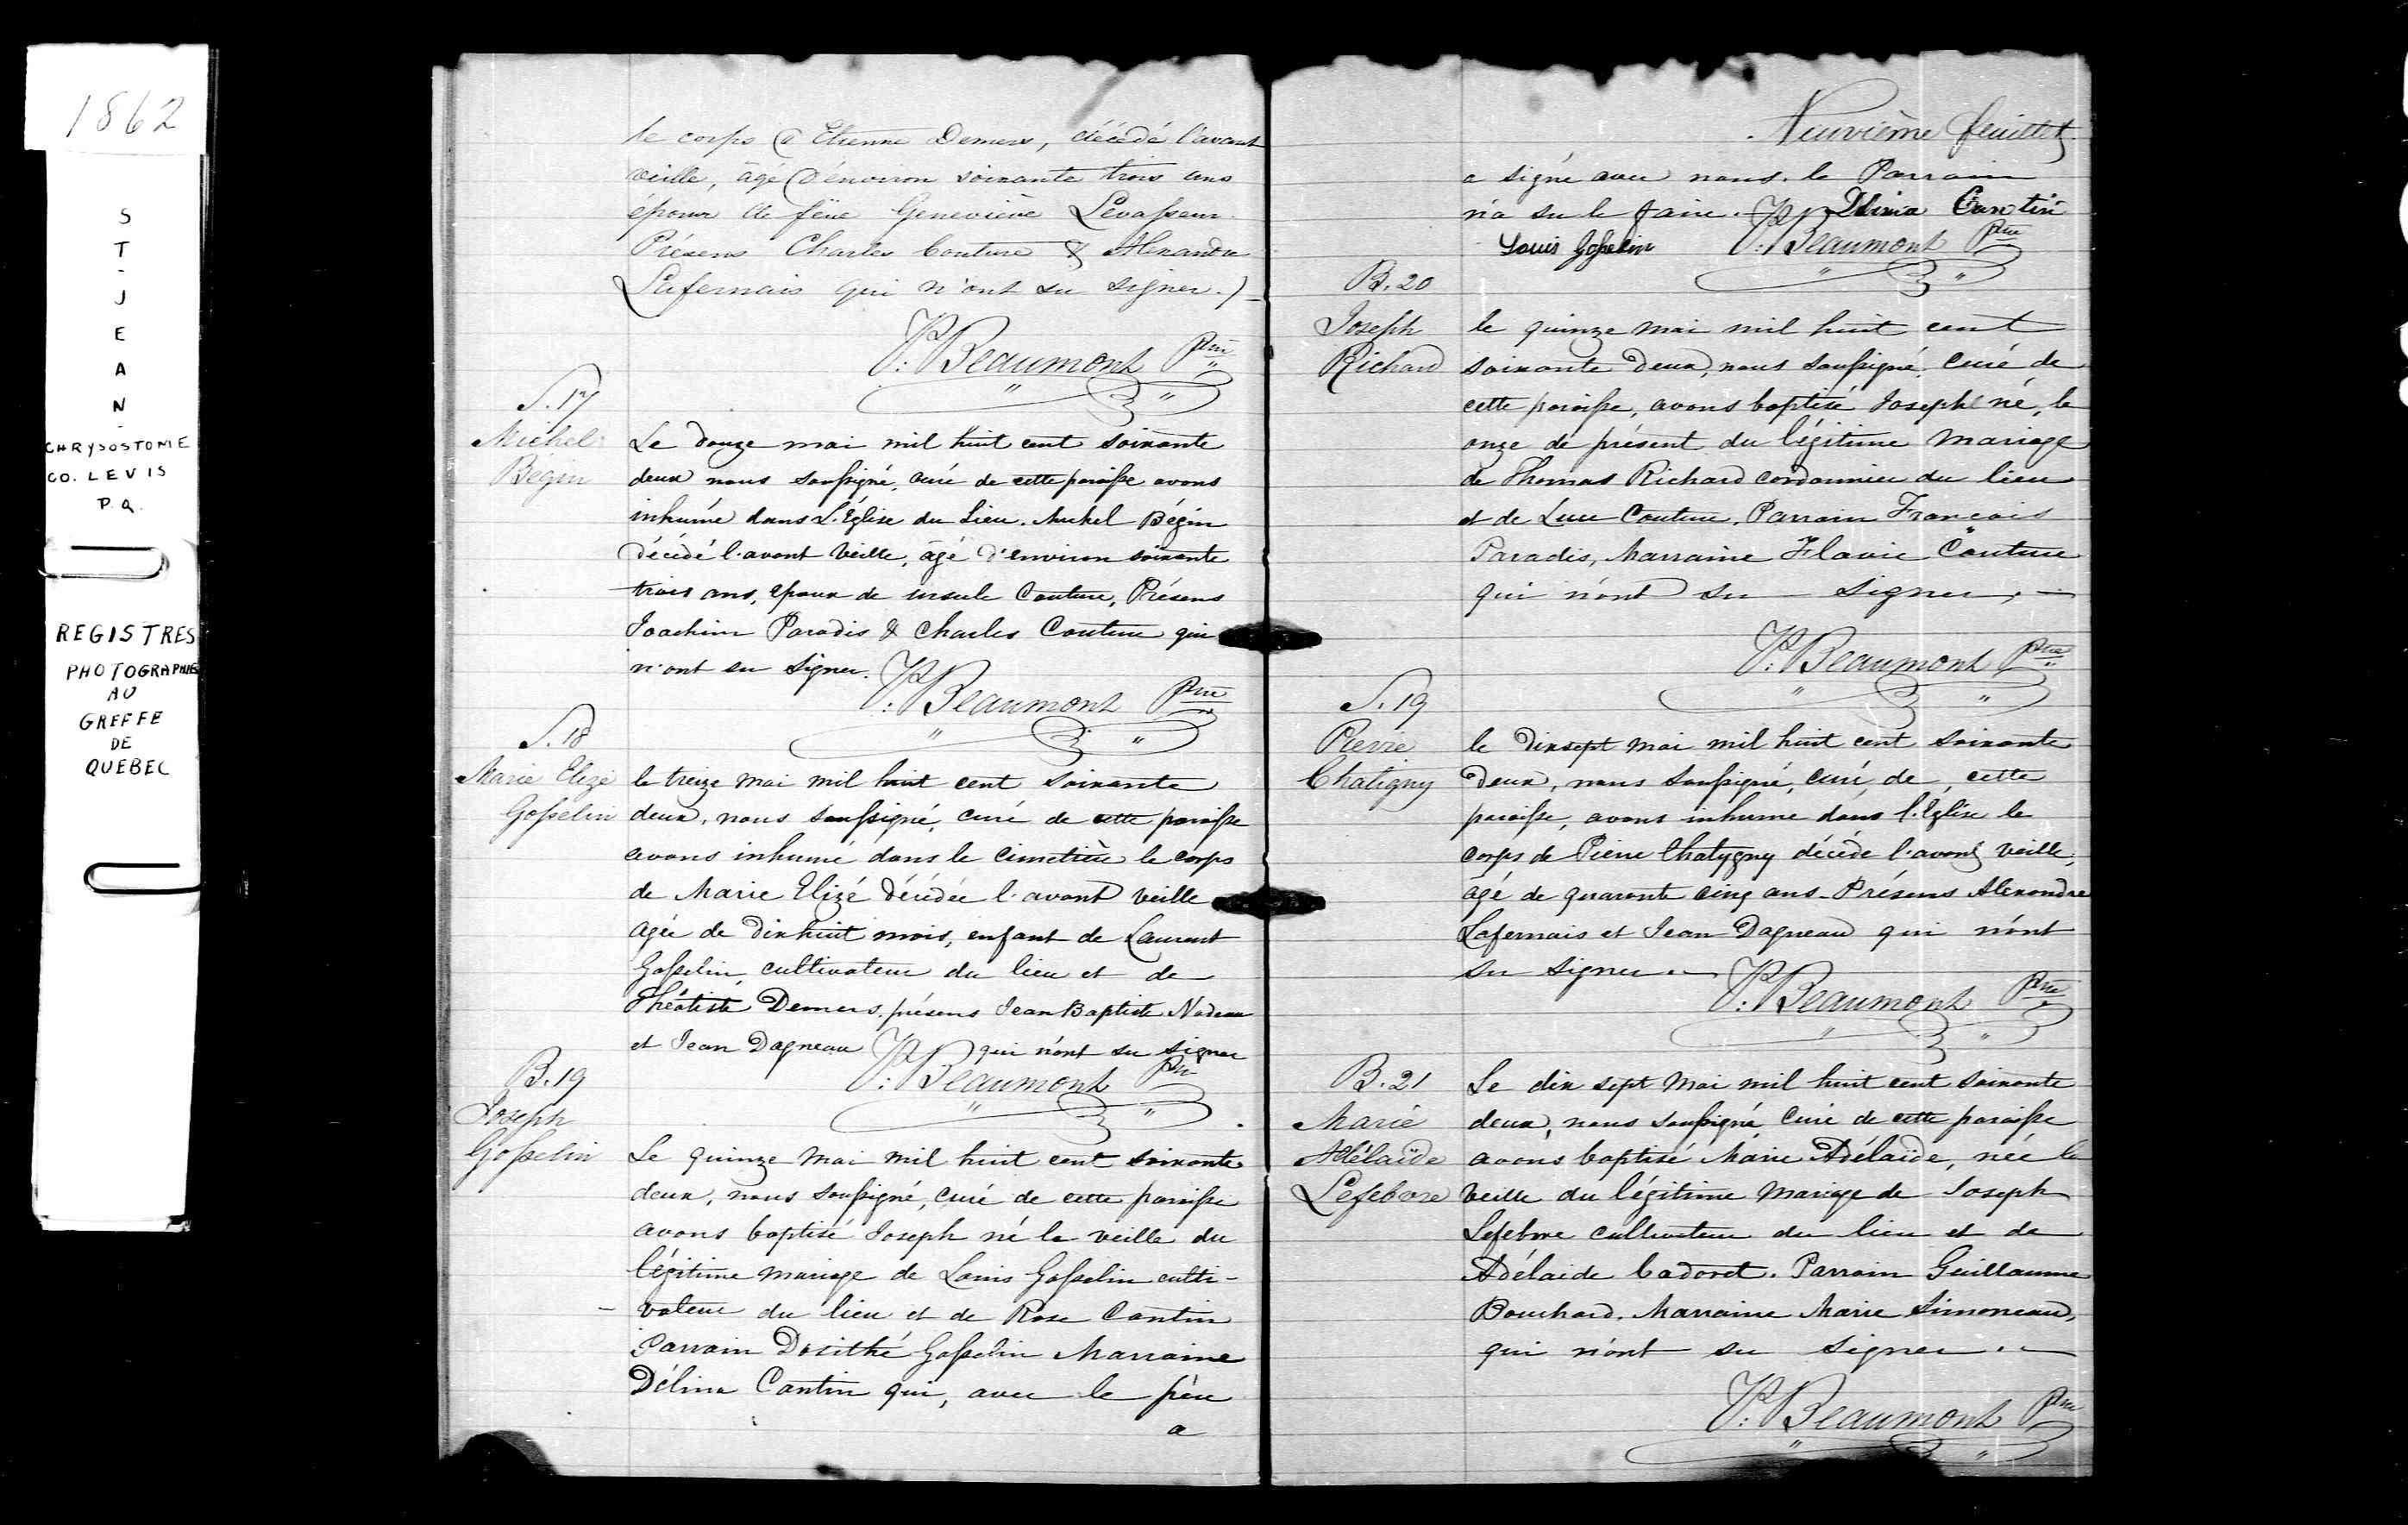 1862
S
T
-
J
E
A
N
-
CHRYSOSTOME
CO. LEVIS
P.Q.
REGISTRES
PHOTOGRAPHIES
AU
GREFFE
DE
QUEBEC
le corps d'Etienne Demers, décédé l'avant
veille, âgé d'environ soixante trois ans
époux de feue Geneviève Levasseur.
Présens Charles Couture & Alexandre
Lafernais qui n'ont su signer.)
P: Beaumont Ptre
S. 17
Michel
Bégin
Le douze mai mil huit cent soixante
deux nous soussigné, curé de cette paroisse avons
inhumé dans L'Église du Lieu. Michel Bégin
décédé l'avant veille, âgé d'environ soixante
trois ans, époux de ursule Couture, Présens
Joachim Paradis & Charles Couture qui
n'ont su signer.
P: Beaumont Ptre
S. 18
Marie Elizé
Gosselin
le treize mai mil huit cent soixante
deux, nous soussigné, curé de cette paroisse
avons inhumé dans le cimetière le corps
de Marie Elizé décédée l'avant veille
agée de dix huit mois, enfant de Laurent
Gosselin cultivateur du lieu et de
Théotiste Demers. présens Jean Baptiste Nadeau
et Jean Dagneau qui n'ont su signer
P: Beaumont Ptre
B. 19
Joseph
Gosselin
Le quinze mai mil huit cent soixante
deux, nous soussigné, curé de cette paroisse
avons baptisé Joseph né la veille du
légitime mariage de Louis Gosselin culti-
- vateur du lieu et de Rose Cantin
Parrain Dosithé Gosselin Marraine
Délina Cantin qui, avec le père
a
Neuvième feuillet
a signé avec nous. le Parrain
n'a su le faire. Dlina Cantin
Louis Gosselin P: Beaumont Ptre
B. 20
Joseph
Richard
le quinze mai mil huit cent
soixante deux, nous soussigné, curé de
cette paroisse, avons baptisé Joseph né, le
onze de présent du légitime mariage
de Thomas Richard cordonnier du lieu
et de Luce Couture. Parrain François
Paradis, Marraine Flavie Couture
qui n'ont su signer. —
P: Beaumont Ptre
S. 19
Pierre
Chatigny
le dix sept mai mil huit cent soixante
deux, nous soussigné, curé, de, cette
paroisse, avons inhumé dans l'Eglise le
corps de Pierre Chatygny décédé l'avant veille,
âgé de quarante cinq ans - Présens Alexandre
Lafernais et Jean Dagneau qui n'ont
su signer. —
P: Beaumont Ptre
B. 21
Marie
Adélaïde
Lefebvre
Le dix sept Mai mil huit cent soixante
deux, nous soussigné curé de cette paroisse
avons baptisé Marie Adélaïde, née la
veille du légitime mariage de Joseph
Lefebvre cultivateur du lieu et de
Adélaide Cadoret. Parrain Guillaume
Bouchard. Marraine Marie Simoneau,
qui n'ont su signer. —
P: Beaumont Ptre